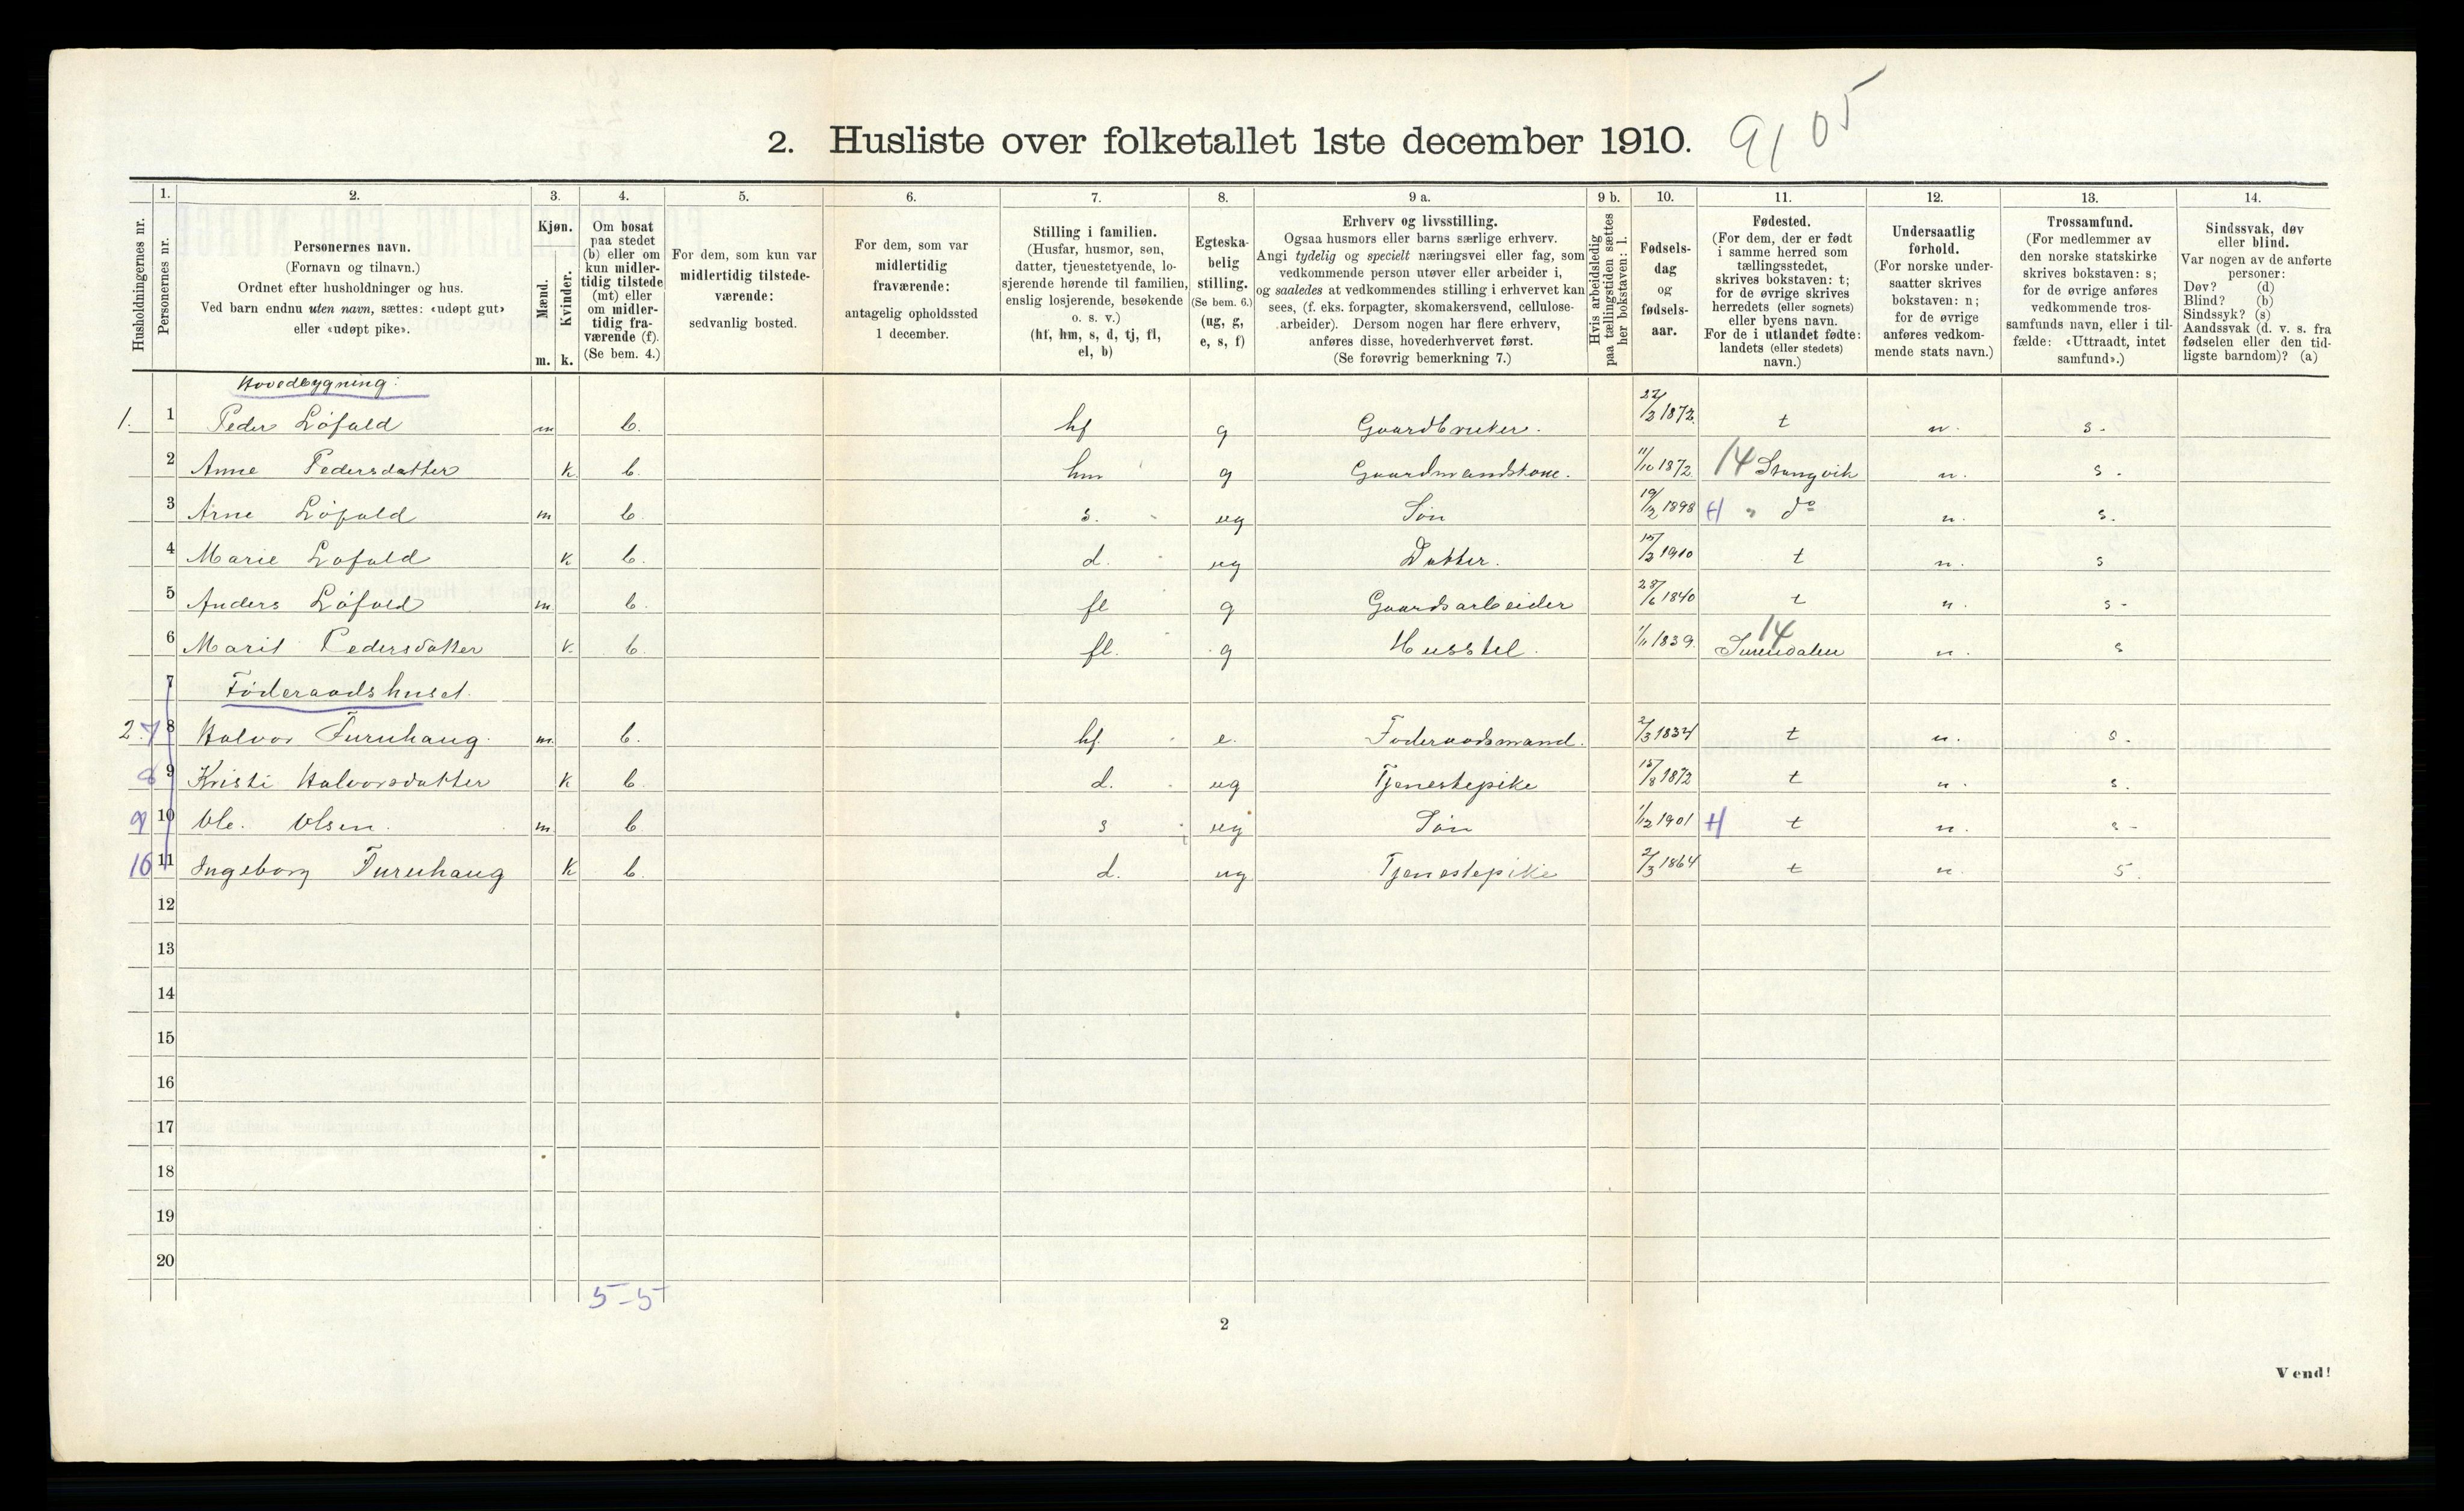 2. Husliste over folketallet 1ste december 1910. 91 05
Husholdningernes nr.
1. Personernes nr.
2. Personernes navn.
(Fornavn og tilnavn.)
Ordnet efter husholdninger og hus.
Ved barn endnu uten navn, sættes: «udøpt gut»
eller «udøpt pike».
3. Kjøn.
Mænd. m.
Kvinder. k.
4. Om bosat
paa stedet
(b) eller om
kun midler-
tidig tilstede
(mt) eller
om midler-
tidig fra-
værende (f).
(Se bem. 4.)
5. For dem, som kun var
midlertidig tilstede-
værende:
sedvanlig bosted.
6. For dem, som var
midlertidig
fraværende:
antagelig opholdssted
1 december.
7. Stilling i familien.
(Husfar, husmor, søn,
datter, tjenestetyende, lo-
sjerende hørende til familien,
enslig losjerende, besøkende
o. s. v.)
(hf, hm, s, d, tj, fl,
el, b)
8. Egteska-
belig
stilling.
(Se bem. 6.)
(ug, g,
e, s, f)
9 a. Erhverv og livsstilling.
Ogsaa husmors eller barns særlige erhverv.
Angi tydelig og specielt næringsvei eller fag, som
vedkommende person utøver eller arbeider i,
og saaledes at vedkommendes stilling i erhvervet kan
sees, (f. eks. forpagter, skomakersvend, cellulose-
arbeider). Dersom nogen har flere erhverv,
anføres disse, hovederhvervet først.
(Se forøvrig bemerkning 7.)
9 b. Hvis arbeidsledig
paa tællingstiden sættes
her bokstaven: l.
10. Fødsels-
dag
og
fødsels-
aar.
11. Fødested.
(For dem, der er født
i samme herred som
tællingsstedet,
skrives bokstaven: t;
for de øvrige skrives
herredets (eller sognets)
eller byens navn.
For de i utlandet fødte:
landets (eller stedets)
navn.)
12. Undersaatlig
forhold.
(For norske under-
saatter skrives
bokstaven: n;
for de øvrige
anføres vedkom-
mende stats navn.)
13. Trossamfund.
(For medlemmer av
den norske statskirke
skrives bokstaven: s;
for de øvrige anføres
vedkommende tros-
samfunds navn, eller i til-
fælde: «Uttraadt, intet
samfund».)
14. Sindssvak, døv
eller blind.
Var nogen av de anførte
personer:
Døv? (d)
Blind? (b)
Sindssyk? (s)
Aandssvak (d. v. s. fra
fødselen eller den tid-
ligste barndom)? (a)
Hovedbygning:
1. 1 Peder Löfald m b. hf g Gaardbruker. 27/2 1872. t n. s.
2 Anne Pedersdatter k. b. hm g Gaardmandskone. 11/10 1872. 14 Stangvik n. s.
3 Arne Löfald m b. s. ug Sön 19/12 1898 H " do n. s.
4 Marie Lofald k b. d. ug Datter. 15/2 1910 t n. s
5 Anders Löfald m. b. fl g Gaardsarbeider 28/6 1840 t n. s-
6 Marit Pedersdatter k. b. fl. g Husstel. 1/11 1839. 14 Surendalen n. s
7 Föderaadshuset.
2. 7 8 Halvor Furuhaug. m. b. hf. e. Föderaadsmand. 2/3 1834 t n. s.
8 9 Kristi Halvorsdatter k b. d. ug Tjenestepike 15/8 1872 t n. s.
9 10 Ole. Olsen. m. b s ug Sön 1/12 1901 H t n. s-
10 11 Ingeborg Furuhaug k b. d. ug Tjenestepike 2/3 1864 t n. s.
12
13
14
15
16
17
18
19
20
5-5
2
Vend!